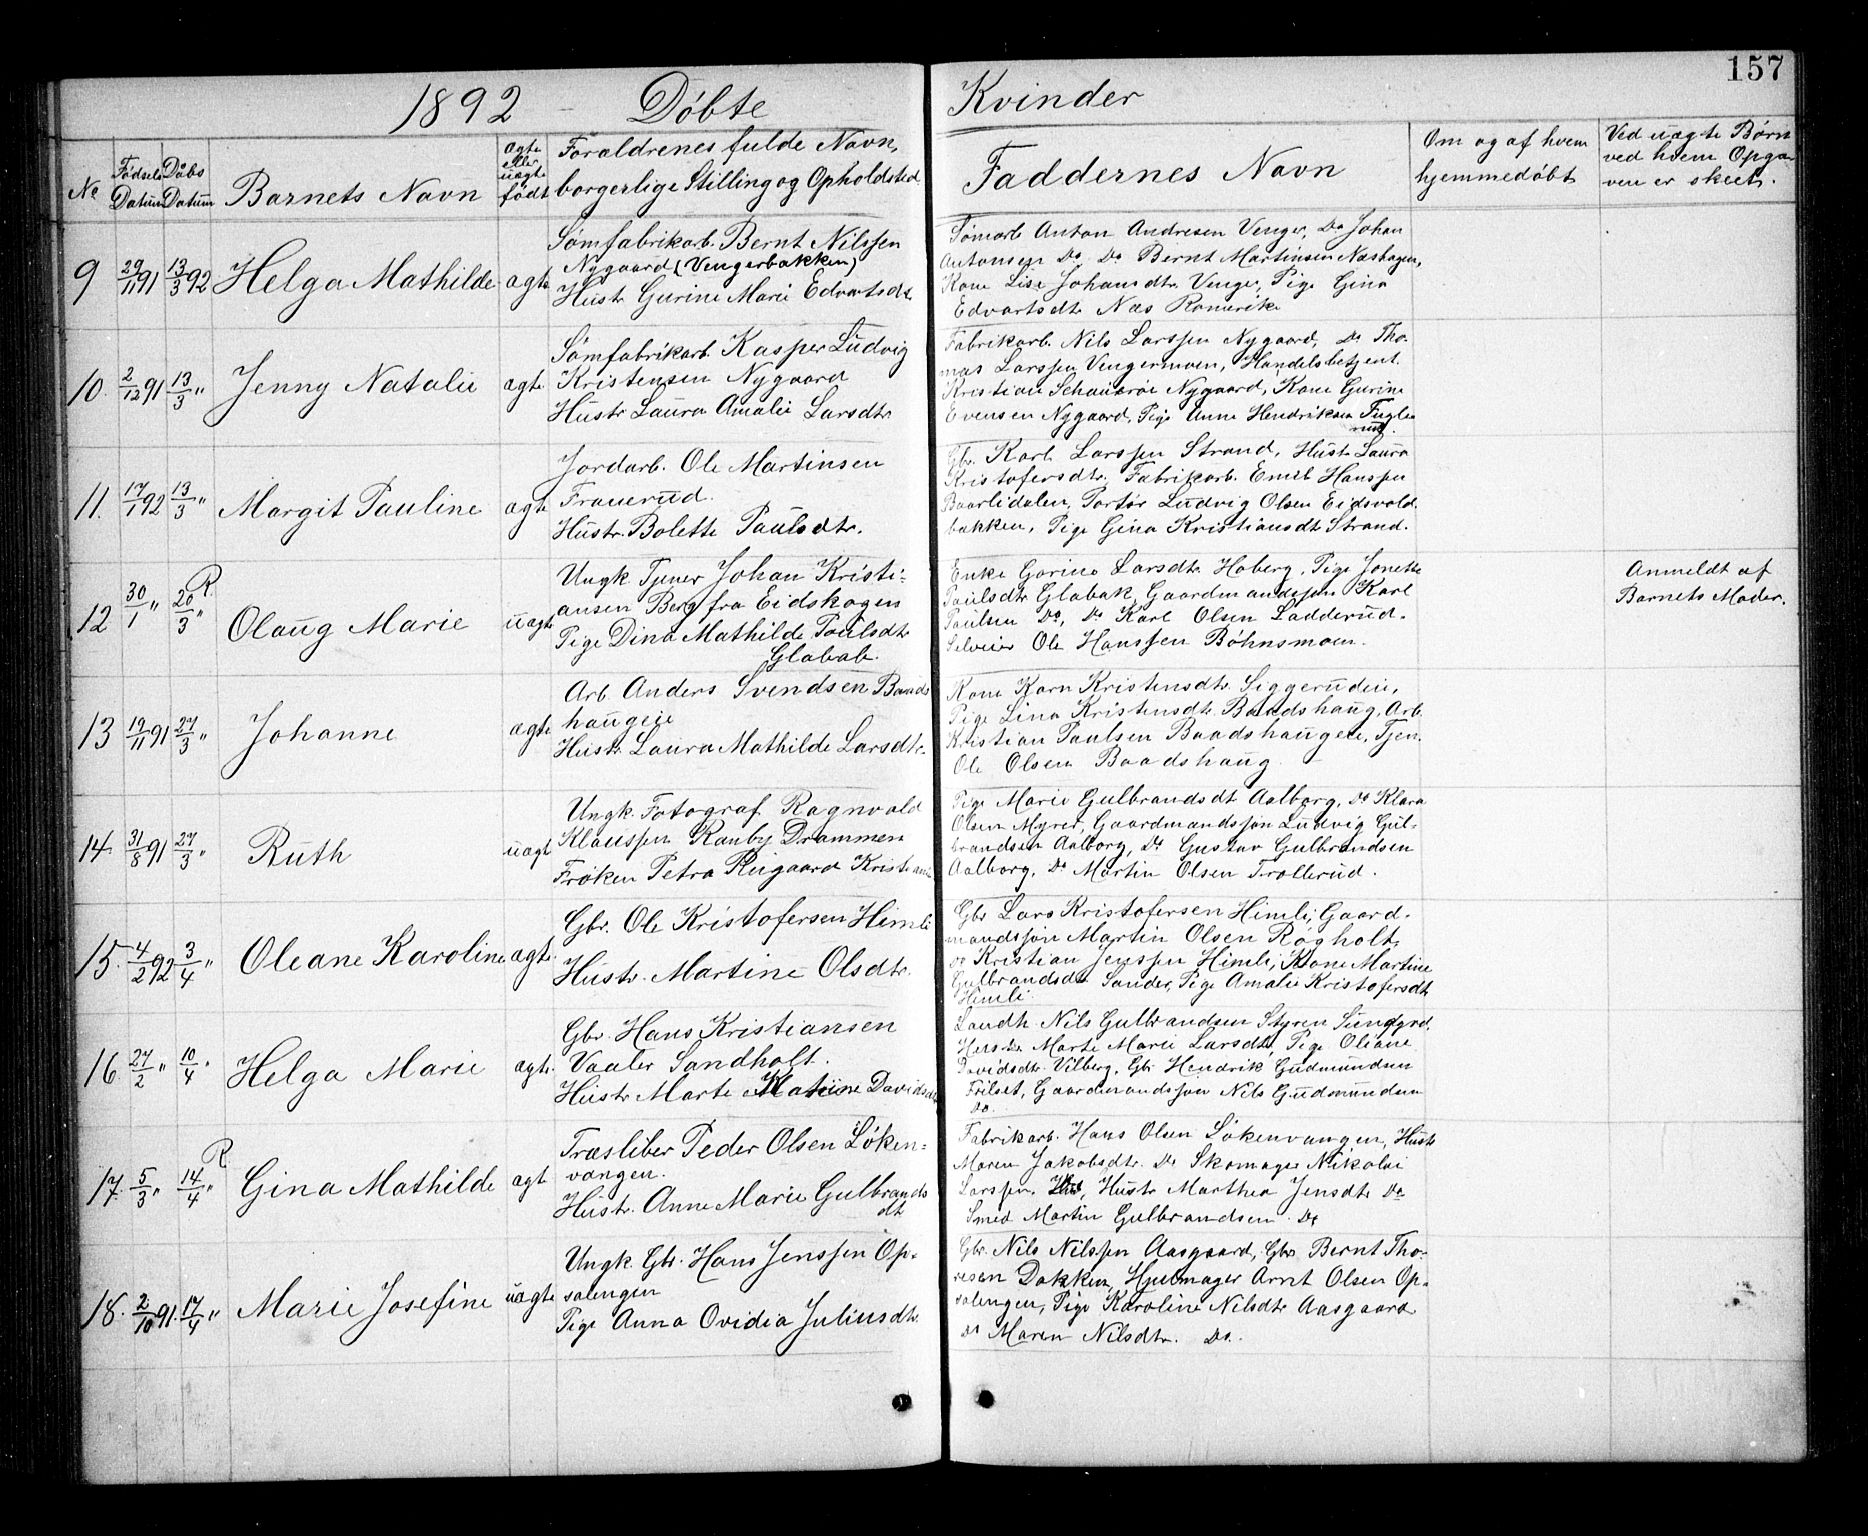 157
1892 Döbte Kvinder
No
Födsels Datum
Daabs Datum
Barnets Navn
ægte eller uægte födt
Foraldrenes fulde Navn, borgerlige Stilling og Opholdsted
Faddernes Navn
Om og af hvem hjemmedöbt
Ved uægte Börn ved hvem Opgaven er skeet.
9 29/11 91 13/3 92 Helga Mathilde ægte
Sömfabrikarb. Bernt Nilssen
Nygaard (Vengerbakken)
Hustr. Gurine Marie Edvartsdt.
Sömarb. Anton Andresen Venger, Do Johan
Antonsen Do, Do Bernt Martinsen Næshagen,
Kone Lise Johansdtr. Venger, Pige Gina
Edvartsdtr. Næs Romerike
10. 2/12 91 13/3 " Jenny Natalie ægte
Sömfabrikarb. Kasper Ludvig
Kristensen Nygaard
Hustr. Laura Amalie Larsdtr.
Fabrikarb. Nils Larssen Nygaard, Do Tho-
mas Larssen Vengermoen, Handelsbetjent
Kristian Nygaard, Kone Gurine
Evensen Nygaard, Pige Anne Hendriksen Fugle-
rud.
11. 17/1 92 13/3 " Margit Pauline ægte
Jordarb. Ole Martinsen
Frauerud.
Hustr. Bolette Paulsdtr.
Gbr. Karl Larssen Strand, Hustr. Laura
Kristofersdtr. Fabrikarb. Emil Hanssen
Baarlidalen, Ludvig Olsen Eidsvold-
bakken, Pige Gina Kristiansdt. Strand.
12 30/1 " 20/3 " R. Olaug Marie uægte
Ungk. Tjener Johan Kristi-
ansen Berg fra Eidskogen
Pige Dina Mathilde Paulsdtr.
Glabak.
Enke Gorine Larsdtr. Hoberg, Pige Jonette
Paulsdtr. Glabak, Gaardmandssön Karl
Paulsen Do, Do Karl Olsen Ladderud.
Selveier Ole Hanssen Böhnsmoen.
Anmeldt af
Barnets Moder.
13 19/11 91 27/3 " Johanne ægte
Arb. Anders Svendsen Baads
haugeie
Hustr. Laura Mathilde Larsdtr.
Kone Karn Kristensdtr. Siggerudeie,
Pige Lina Kristensdtr. Baadshaug, Arb.
Kristian Paulsen Baadshaugeie, Tjen.
Ole Olsen Baadshaug
14. 31/8 91 27/3 " Ruth uægt
Ungk. Fotograf Ragnvald
Klaussen Ranby Drammen
Fröken Petra Ringaard Kristiania
Pige Marie Gulbrandsdt Aalborg, Do Klara
Olsen Myrer, Gaardmandssön Ludvig Gul-
brandsen Aalborg, Do Gustav Gulbrandsen
Aalborg, Do Martin Olsen Trollerud.
15. 4/2 92 3/4 " Oleane Karoline ægte.
Gbr. Ole Kristofersen Himli
Hustr. Martine Olsdtr.
Gbr Lars Kristofersen Himli, Gaard-
mandssön Martin Olsen Rögholt,
Do Kristian Jenssen Himli, Kone Martine
Gulbrandsdt. Sander, Pige Amalie Kristofersdt.
Himli.
16. 27/2 " 10/4 " Helga Marie ægte.
Gbr. Hans Kristiansen
Vaaler Sandholt.
Hustr. Marte Davidsdt.
Landh. Nils Gulbrandsen Styren
Hustr. Marte Marie Larsdtr, Pige Oliane
Davidsdtr. Vilberg, Gbr. Hendrik Gudmundsen
Frilset, Gaardmandssön Nils Gudmundsen
Do.
17. 5/3 " 14/4 " R. Gina Mathilde ægt
Træsliber Peder Olsen Löken-
vangen.
Hustr. Anne Marie Gulbrands
dt
Fabrikarb. Hans Olsen Lökenvangen, Hustr.
Maren Jakobsdtr. Do Skomager Nikolai
Larssen, Hustr Marthea Jensdtr. Do
Smed Martin Gulbrandsen Do
18. 2/10 91. 17/4 " Marie Josefine uægte
Ungk. Gbr. Hans Jenssen Op-
salengen
Pige Anna Ovidia Juliusdtr.
Gbr. Nils Nilssen Aasgaard, Gbr. Bernt Tho-
resen Dakken, Hjulmager Arnt Olsen Op-
salengen, Pige Karoline Nilsdtr. Aasgaard
Do Maren Nilsdtr. Do.